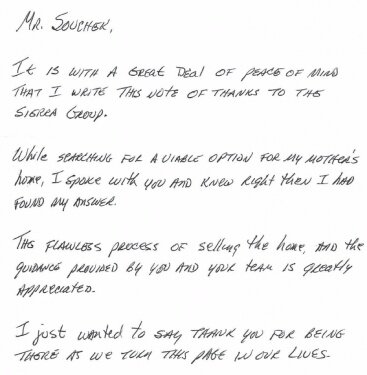 Mr. Souchek,
It is with a great deal of peace of mind
that I write this note of thanks to the
Sierra Group.
While searching for a viable option for my mother's
home, I spoke with you and knew right then I had
found my answer.
The flawless process of selling the home, and the
guidance provided by you and your team is greatly
appreciated.
I just wanted to say thank you for being
there as we turn this page in our lives.